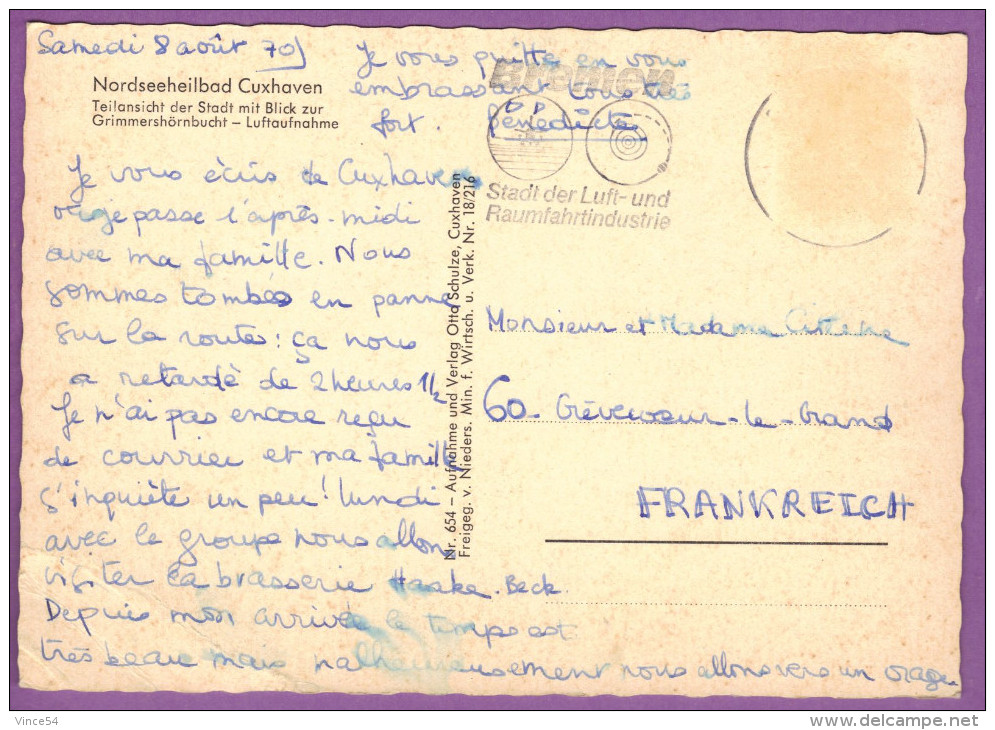 Samedi 8 août 70
Nordseeheilbad Cuxhaven
Teilansicht der Stadt mit Blick zur
Grimmershörnbucht – Luftaufnahme
Je vous écris de Cuxhaven
où je passe l'après-midi
avec ma famille. Nous
sommes tombés en panne
sur la route : ça nous
a retardé de 2 heures 1/2
Je n'ai pas encore reçu
de courrier et ma famille
s'inquiète un peu ! Lundi
avec le groupe nous allons
visiter la brasserie Haake-Beck.
Depuis mon arrivée le temps est
très beau mais malheureusement nous allons vers un orage.
Je vous quitte en vous
embrassant tous très
fort. Bénédicte
Bremen
Stadt der Luft- und
Raumfahrtindustrie
Nr. 654 – Aufnahme und Verlag Otto Schulze, Cuxhaven
Freigeg. v. Nieders. Min. f. Wirtsch. u. Verk. Nr. 18/216
Monsieur et Madame
60 - Crèvecoeur-le-Grand
FRANKREICH
Vince54
delcampe.net